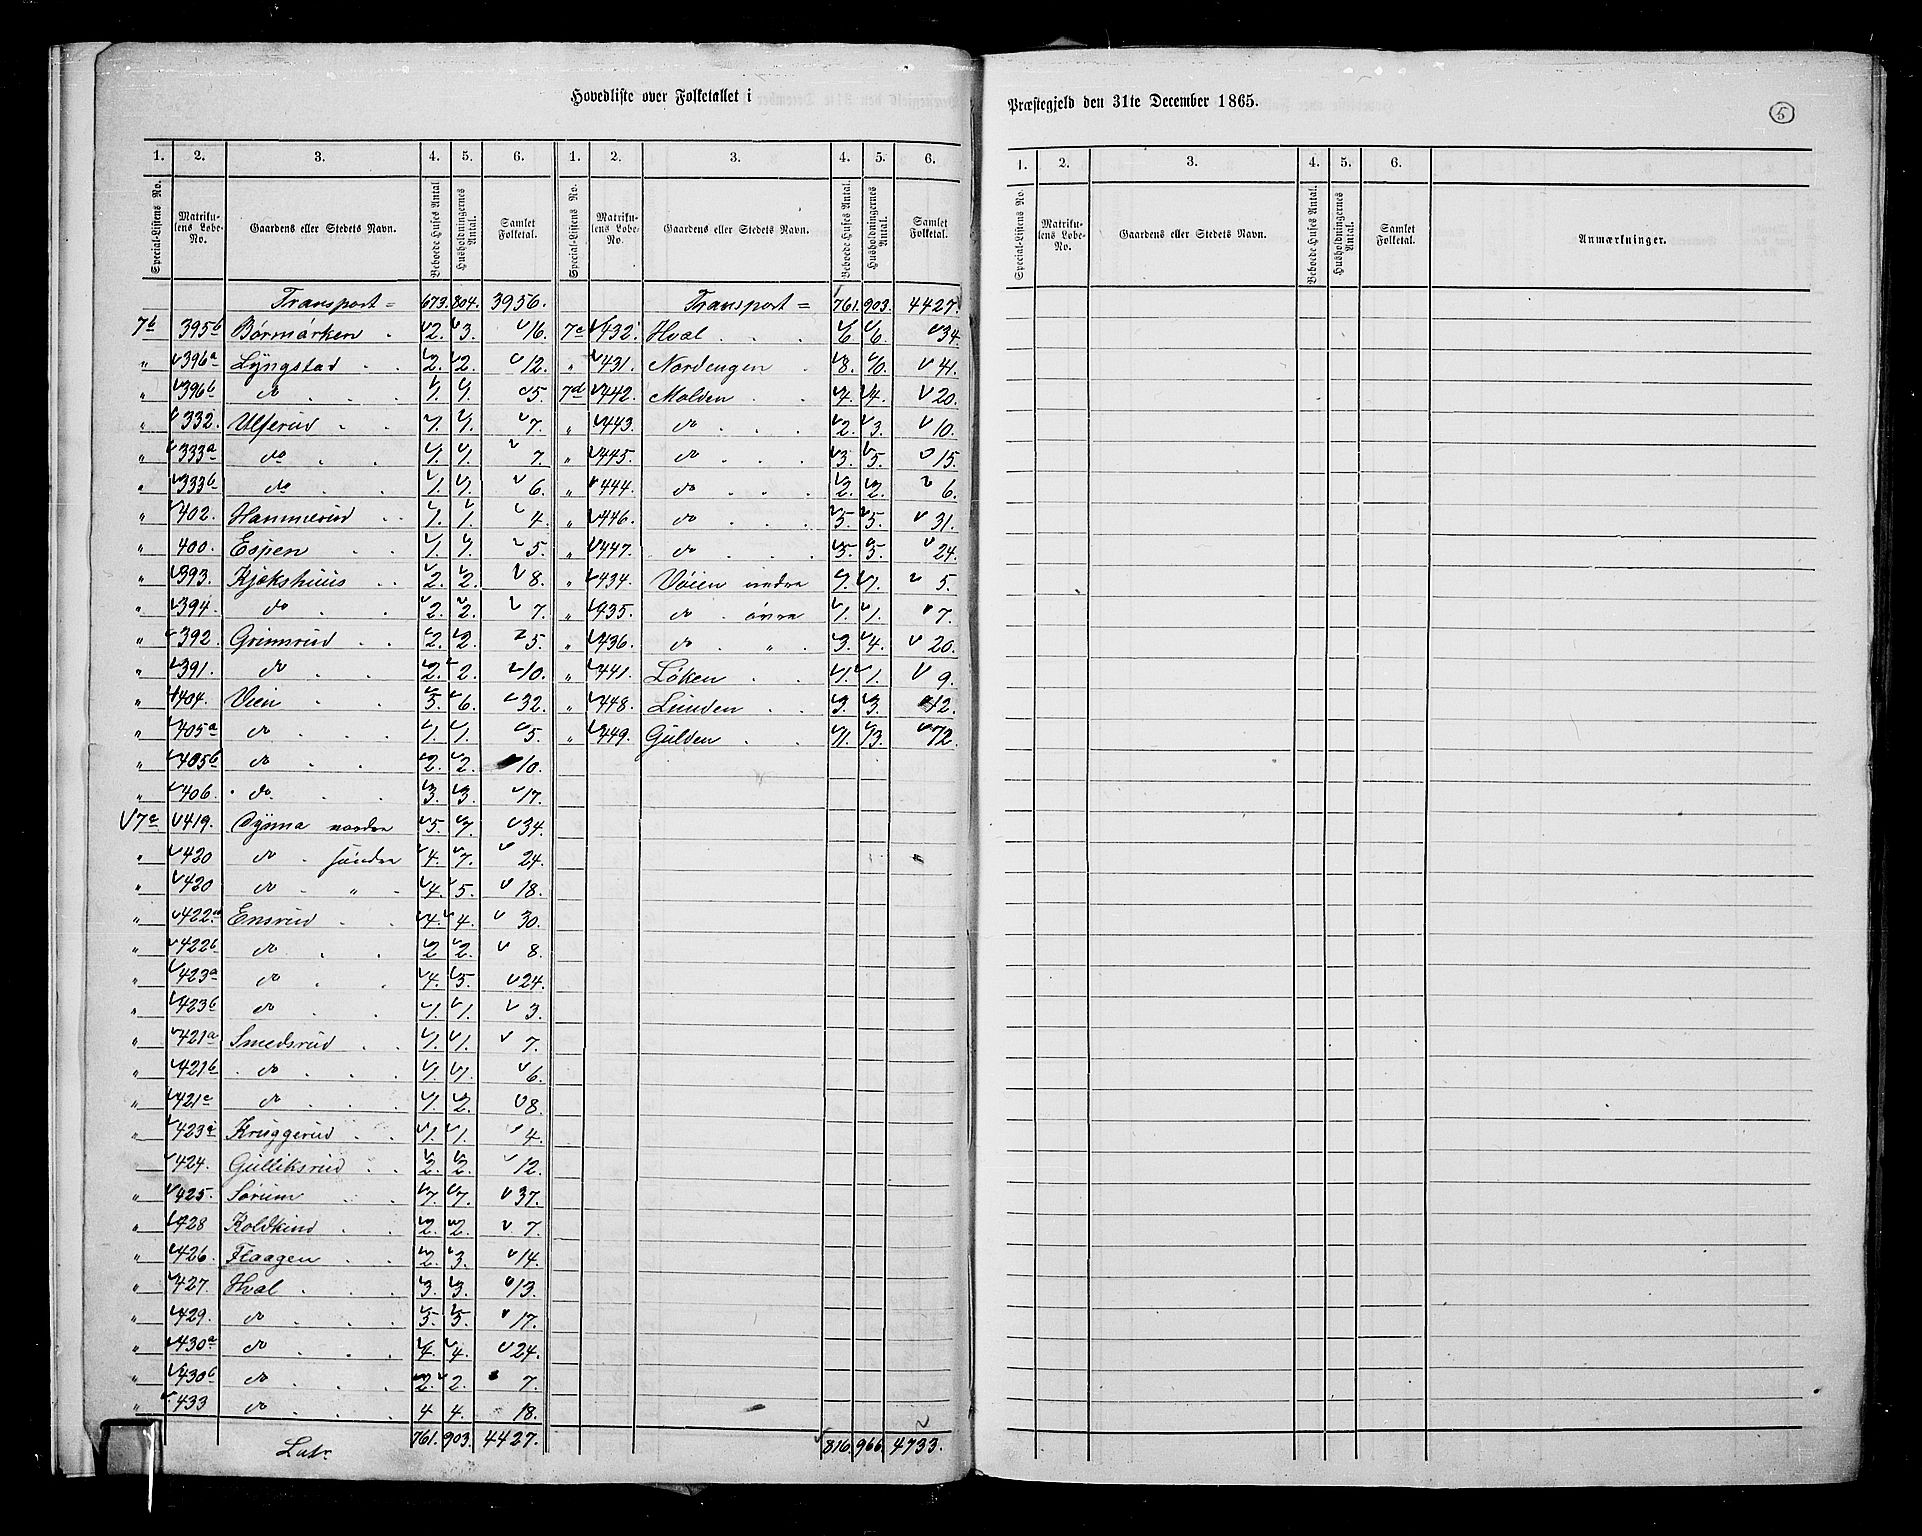 Hovedliste over Folketallet i
Præstegjeld den 31te December 1865.
5
1. 2. 3. 4. 5. 6. 1. 2. 3. 4. 5. 6.
Special-Listens No. Matrikulens Løbe-No. Gaardens eller Stedets Navn. Beboede Huses Antal Husholdningernes Antal. Samlet Folketal. Special-Listens No. Matrikulens Løbe-No. Gaardens eller Stedets Navn. Beboede Huses Antal. Husholdningernes Antal. Samlet Folketal.
Transport = 673. 804. 3956. Transport = 761. 903. 4427.
7b 395b Børmarken 2. 3. 16. 7c 432. Hval 6. 6. 34.
" 396a Lyngstad 2. 2. 12. " 431. Nordengen 8. 10. 41.
" 396b do 1. 1. 5. 7d 442. Molden 4. 4. 20.
" 332. Ulferud 1. 1. 7. " 443. do 2. 3. 10.
" 333a do 1. 1. 7. " 445. do 3. 5. 15.
" 333b do 1. 1. 6. " 444. do 2. 2. 6.
" 402. Hammerud 1. 1. 4. " 446. do 5. 5. 31.
" 400. Espen 1. 1. 5. " 447. do 5. 5. 24.
" 393. Kjøkshuus 2. 2. 8. " 434. Vøien nedre 1. 1. 5.
" 394. do 2. 2. 7. " 435. do øvre 1. 1. 7.
" 392. Grimsrud 2. 2. 5. " 436. do " 3. 4. 20.
" 391. do 2. 2. 10. " 441. Løken 1. 1. 9.
" 404. Vien 5. 6. 32. " 448. Lunden 3. 3. 12.
" 405a do 1. 1. 5. " 449. Gulden 11. 13. 72.
" 405b do 2. 2. 10.
" 406. do 3. 3. 17.
7c 419. Dynna nordre 5. 7. 34.
" 420 do søndre 4. 7. 24.
" 420 do " 4. 5. 18.
" 422a Ensrud 4. 4. 30.
" 422b do 2 2. 8.
" 423a do 4. 5. 24.
" 423b do 1. 1. 3.
" 421a Smedsrud 1. 1. 7.
" 421b do 1. 1. 6.
" 421c do 1. 2. 8.
" 423a Kruggerud 1. 1. 4.
" 424. Gulliksrud 2. 2. 12.
" 425. Sørum 7. 7. 37.
" 428 Koldkind 2. 2. 7.
" 426. Flaagen 2. 3. 14.
" 427. Hval 3. 3. 13.
" 429. do 5. 5. 17.
" 430a do 4. 4. 24.
" 430b do 2. 2. 7.
" 433 do 4 4. 18.
Lat. 761. 903. 4427. 816. 966. 4733.
1. 2. 3. 4. 5. 6.
Special-Listens No. Matrikulens Løbe-No. Gaardens eller Stedets Navn. Beboede Huses Antal. Husholdningernes Antal. Samlet Folketal. Anmærkninger.